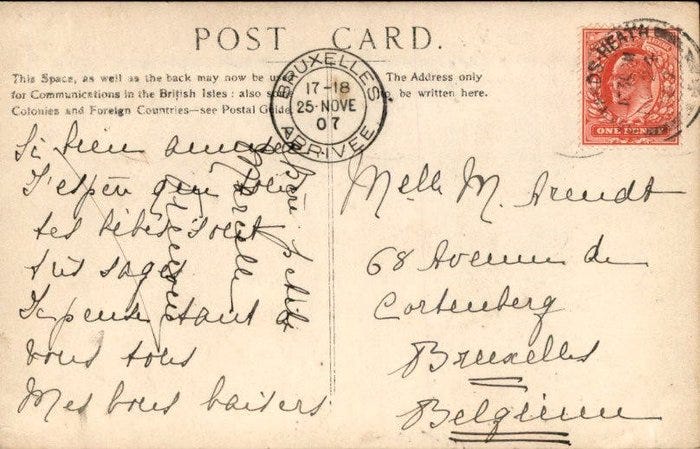 POST CARD.
This Space, as well as the back may now be
for Communications in the British Isles: also
Colonies and Foreign Countries—see Postal Guide.
The Address only
to be written here.
BRUXELLES
17-18
25·NOVE
07
ARRIVEE
HEATH
ONE PENNY
Si bien
J'espère que
tes bébés sont
très sages
Je pense tant à
vous tous
Mes bons baisers
petite
Marcelle
Melle M. Arendt
68 Avenue de
Cortenberg
Bruxelles
Belgium